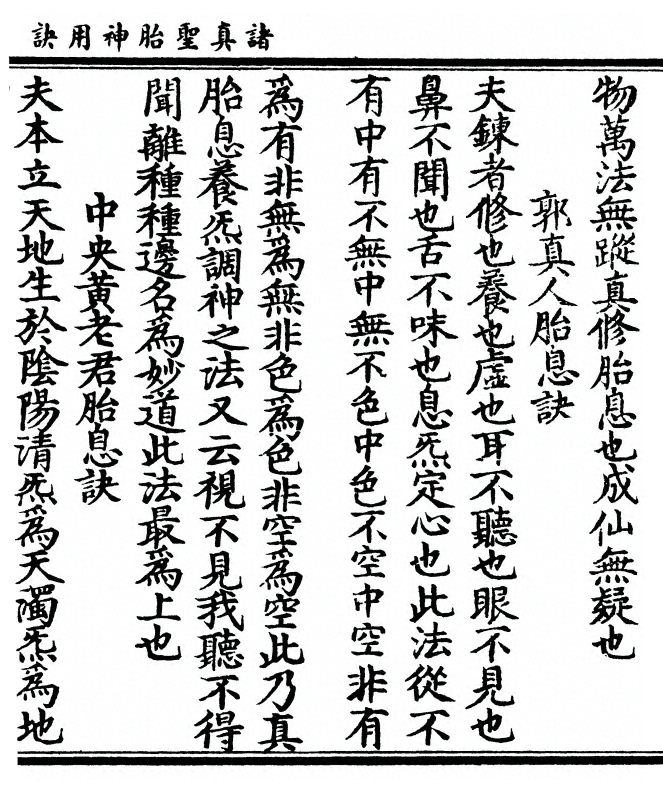 諸真聖胎神用訣
物萬法無蹤真修胎息也成仙無疑也
郭真人胎息訣
夫鍊者修也養也虛也耳不聽也眼不見也
鼻不聞也舌不味也息炁定心也此法從不
有中有不無中無不色中色不空中空非有
爲有非無爲無非色爲色非空爲空此乃真
胎息養炁調神之法又云視不見我聽不得
聞離種種邊名爲妙道此法最爲上也
中央黃老君胎息訣
夫本立天地生於陰陽清炁爲天濁炁爲地